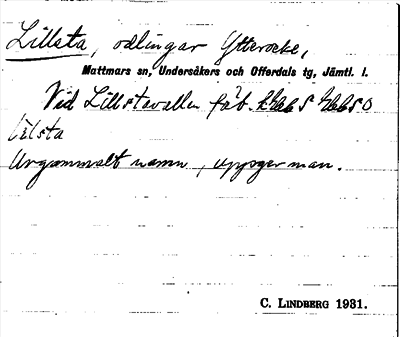 Lillsta, odlingar Ytterocke,
Mattmars sn, Undersåkers och Offerdals tg, Jämtl. l.
Vid Lillstavallen fäb.
lılsta
Urgammalt namn, uppger man.
C. LINDBERG 1931.